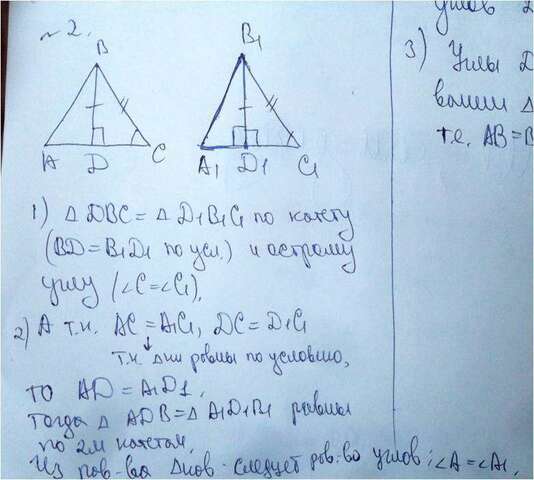 №2.
B
A D C
B₁
A₁ D₁ C₁
1) △ DBC = △ D₁B₁C₁ по катету
(BD = B₁D₁ по усл.) и острому
углу (∠C = ∠C₁),
2) А т.к. AC = A₁C₁, DC = D₁C₁
т.к. они равны по условию,
то AD = A₁D₁,
тогда △ ADB = △ A₁D₁B₁ равны
по 2м катетам,
Из рав-ва △ков следует рав-во углов: ∠A = ∠A₁,
углов
3) Углы D
△
т.е. AB = B